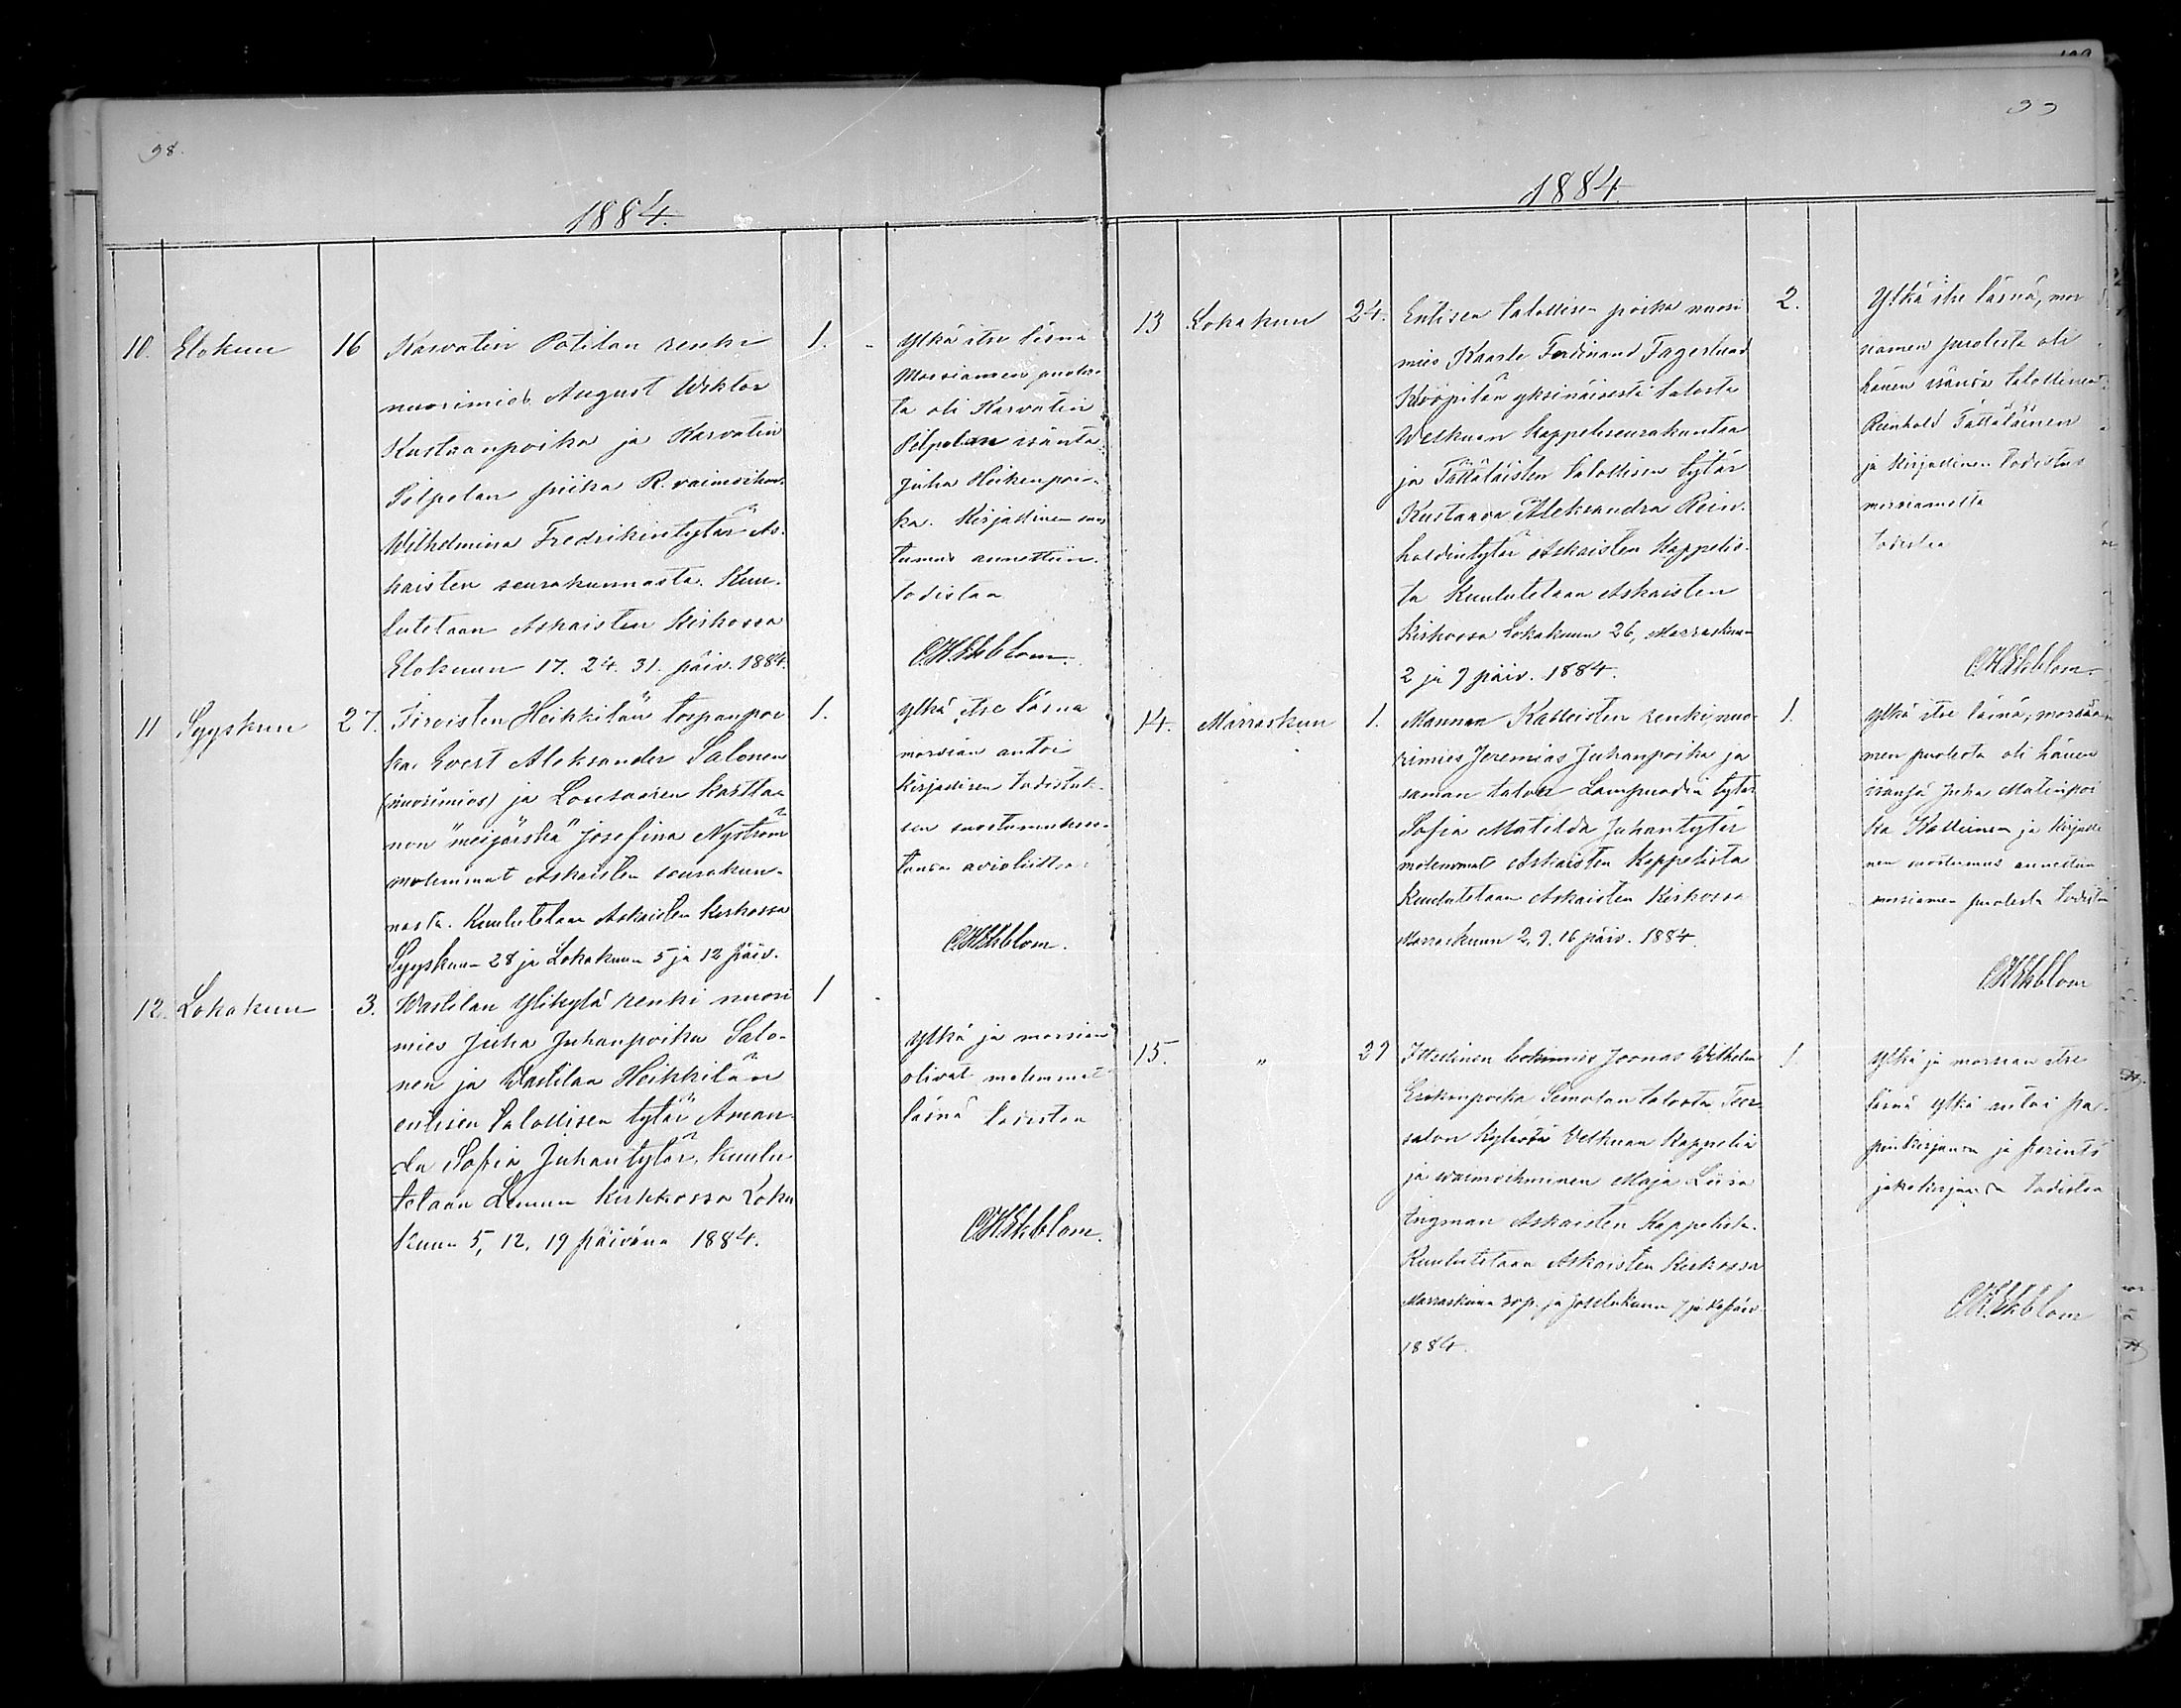 98.
1884.
10. Elokuun 16 Karvatin Potilan renki 1.
nuorimies August Wiktor
Kustaanpoika ja Karvatin
Pilpolan piika R. vaimoihm.
Wilhelmina Fredrikintytär As-
kaisten seurakunnasta. Kuu-
lutetaan Askaisten Kirkossa
Elokuun 17. 24. 31. päiv. 1884.
Ylkä itse läsnä
Morsiamen puoles-
ta oli Karvatin
Pilpolan isäntä
Juha Heikinpoi-
ka. Kirjallinen suos
tumus annettiin.
todistaa
C.H.Ekblom.
11 Syyskuun 27. Heikkilän torpanpoi 1.
ka Evert Aleksander Salonen
(nuorimies) ja Louesaaren kartta-
non "meijärskä" Josefina Nyström
molemmat Askaisten seurakun-
nasta. Kuulutetaan Askaisten kirkossa
Syyskuun 28 ja Lokakuun 5 ja 12 päiv.
Ylkä itse läsnä
morsian antoi
Kirjallisen todistuk-
sen suostumukses-
tansa avioliittoon
C.H.Ekblom.
12. Lokakuun 3. Wastilan Ylikylä renki nuori 1
mies Juha Juhanpoika Salo-
nen ja Wastilan Heikkilän
entisen talollisen tytär Aman-
da Sofia Juhantytär, kuulu
tetaan Lemun kirkkossa Loka
kuun 5, 12, 19 päivänä 1884.
Ylkä ja morsian
olivat molemmat
läsnä todistaa
C.H.Ekblom.
99
1884
13 Lokakuun 24. Entisen talollisen poika nuori 2.
mies Kaarle Ferdinand Fagerlund
Kööpilän yksinäisestä talosta
Welkuan kappeliseurakuntaa
ja Tättäläisten talollisen tytär
Kustaava Aleksandra Rein-
holdintytär Askaisten Kappelis-
ta Kuulutetaan Askaisten
Kirkossa Lokakuun 26, Marraskuun
2 ja 9 päiv. 1884.
Ylkä itse läsnä, mor
siamen puolesta oli
hänen isänsä talollinen
Reinhold Tättäläinen
ja Kirjallinen todistus
morsiamelta
todistaa
C.H.Ekblom.
14. Marraskuun 1. Mannan Kalloisten renki, nuo- 1.
rimies Jeremias Juhanpoika ja
saman talon Lampuodin tytär
Sofia Matilda Juhantytär
molemmat Askaisten kappelista
Kuulutetaan Askaisten Kirkossa
Marraskuun 2, 9, 16 päiv. 1884.
Ylkä itse läsnä, morsia
men puolesta oli hänen
isänsä Juha Matinpoi
ka Kalloinen ja kirjalli
nen suostumus annettiin
morsiamen puolesta todistaa
C.H.Ekblom
15. " 29 Itsellinen leskimies Joonas Wilhelm 1
Erikinpoika Semolan talosta Teer-
salon kylästä Velkuan kappelia
ja waimoihminen Maja Liisa
Engman Askaisten Kappelista.
Kuulutetaan Askaisten Kirkossa
Marraskuun 30 p. ja Joulukuun 7 ja 14 päiv.
1884.
Ylkä ja morsian itse
läsnä Ylkä antoi pa-
pinkirjansa ja perintö
jakokirjansa todistaa
C.H.Ekblom